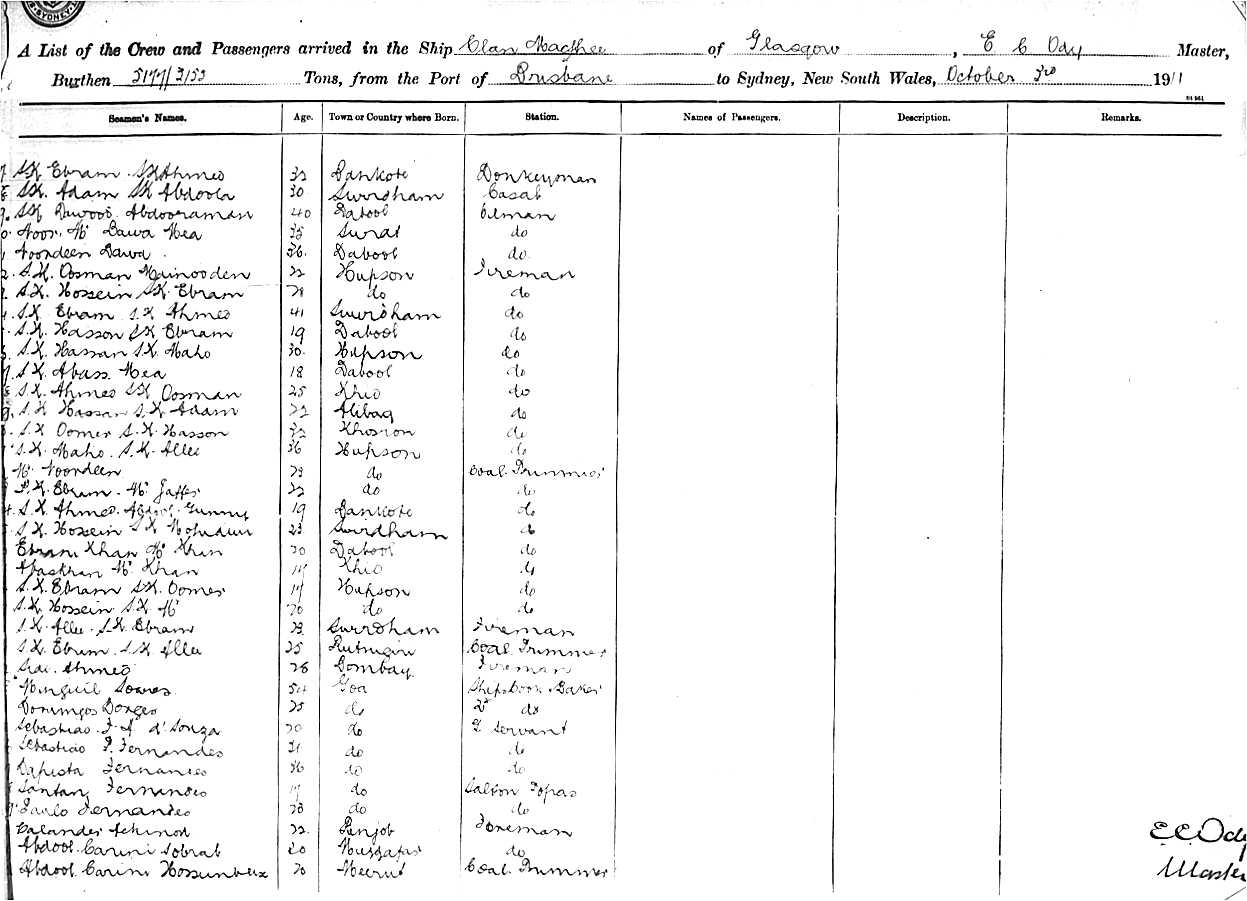 SYDNEY
A List of the Crew and Passengers arrived in the Ship Clan Macphee of Glasgow, E C Ody Master,
Burthen Tons, from the Port of Brisbane to Sydney, New South Wales, October 3rd 1911
Seamen's Names. Age. Town or Country where Born. Station. Names of Passengers. Description. Remarks.
S.K. Ebram S.K. Ahmed 32 Bankote Donkeyman
S.K. Adam S.K. Abdoola 30 Suvrdham Casab
S.K. Dawood Abdooraman 40 Dabool Oilman
Noor Md Dawa Mea 35 Surat do
Noordeen Dawa 36 Dabool do
S.K. Oosman Mainooden 22 Hupson Fireman
S.K. Hossein S.K. Ebram 28 do do
S.K. Ebram S.K. Ahmed 41 Suvrdham do
S.K. Hasson S.K. Ebram 19 Dabool do
S.K. Hassan S.K. Maho 30 Hupson do
S.K. Abass Mea 18 Dabool do
S.K. Ahmed S.K. Oosman 25 Khed do
S.K. Hassan S.K. Adam 22 Alibag do
S.K. Oomer S.K. Hasson 32 do
S.K. Maho S.K. Allee 36 Hupson do
Md Noordeen 28 do Coal Trimmer
S.K. Ebram Md Jaffer 22 do do
S.K. Ahmed Abdool Gunny 19 Bankote do
S.K. Hossein S.K. 23 Suvrdham do
Ebram Khan Md Khan 20 Dabool do
Abaskhan Md Khan Khed do
S.K. Ebram S.K. Oomer 17 Hupson do
S.K. Hossein S.K. Md 20 do do
S.K. Allee S.K. Ebram 28 Suvrdham Fireman
S.K. Ebram S.K. Allee 25 Coal Trimmer
Ahmed 26 Bombay Fireman
Minguil Soares 54 Goa Ships Cook Baker
Domingos Borges 25 do 2d do
Sebastiao F. A. d'Souza 20 do G Servant
Sebastiao P. Fernandes 31 do do
Bapista Fernandes 36 do do
Santan Fernandes 19 do Saloon Topas
Paulo Fernandes 28 do do
Calander 22 Punjob Foreman
Abdool Carim Sobrab 20 Muzzafar do
Abdool Carim Hossunbux 20 Meerut Coal Trimmer
E C Ody
Master